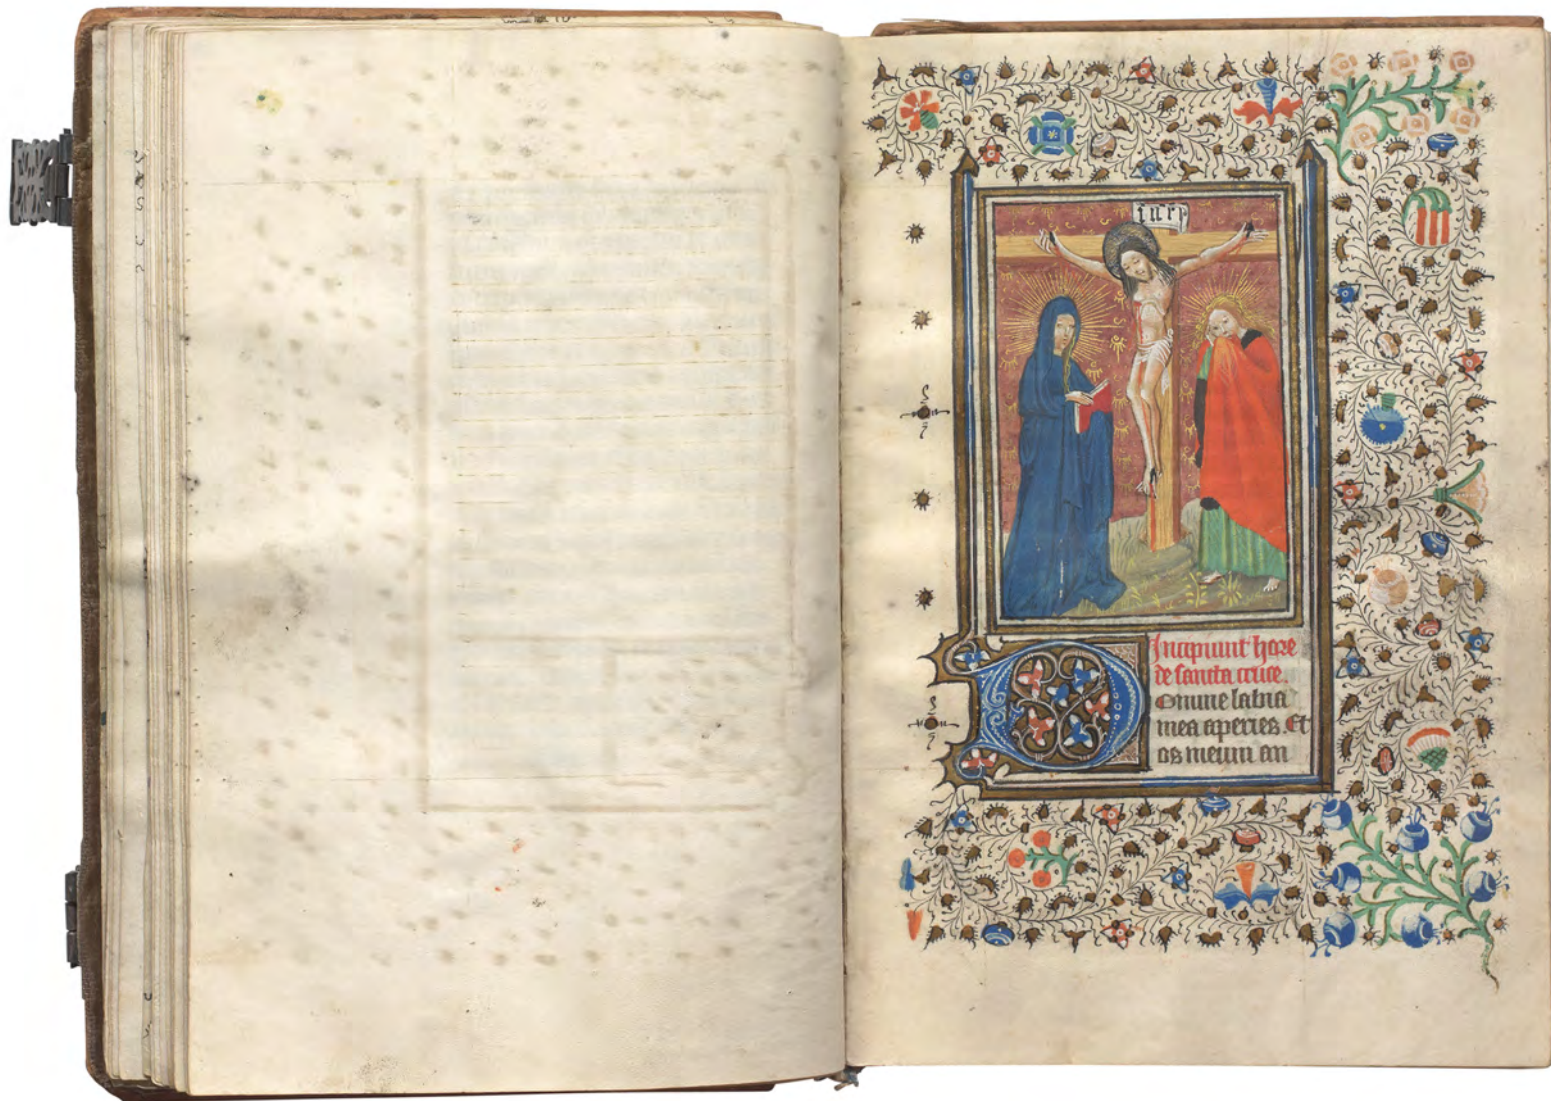 inri
Incipiunt hore
de sancta cruce.
Domine labia
mea aperies. Et
os meum an